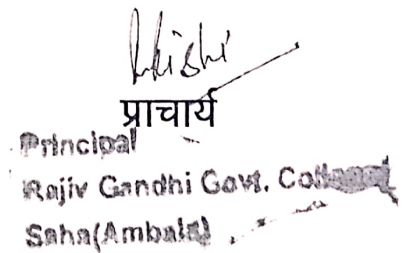 प्राचार्य
Principal
Rajiv Gandhi Govt. College
Saha(Ambala)